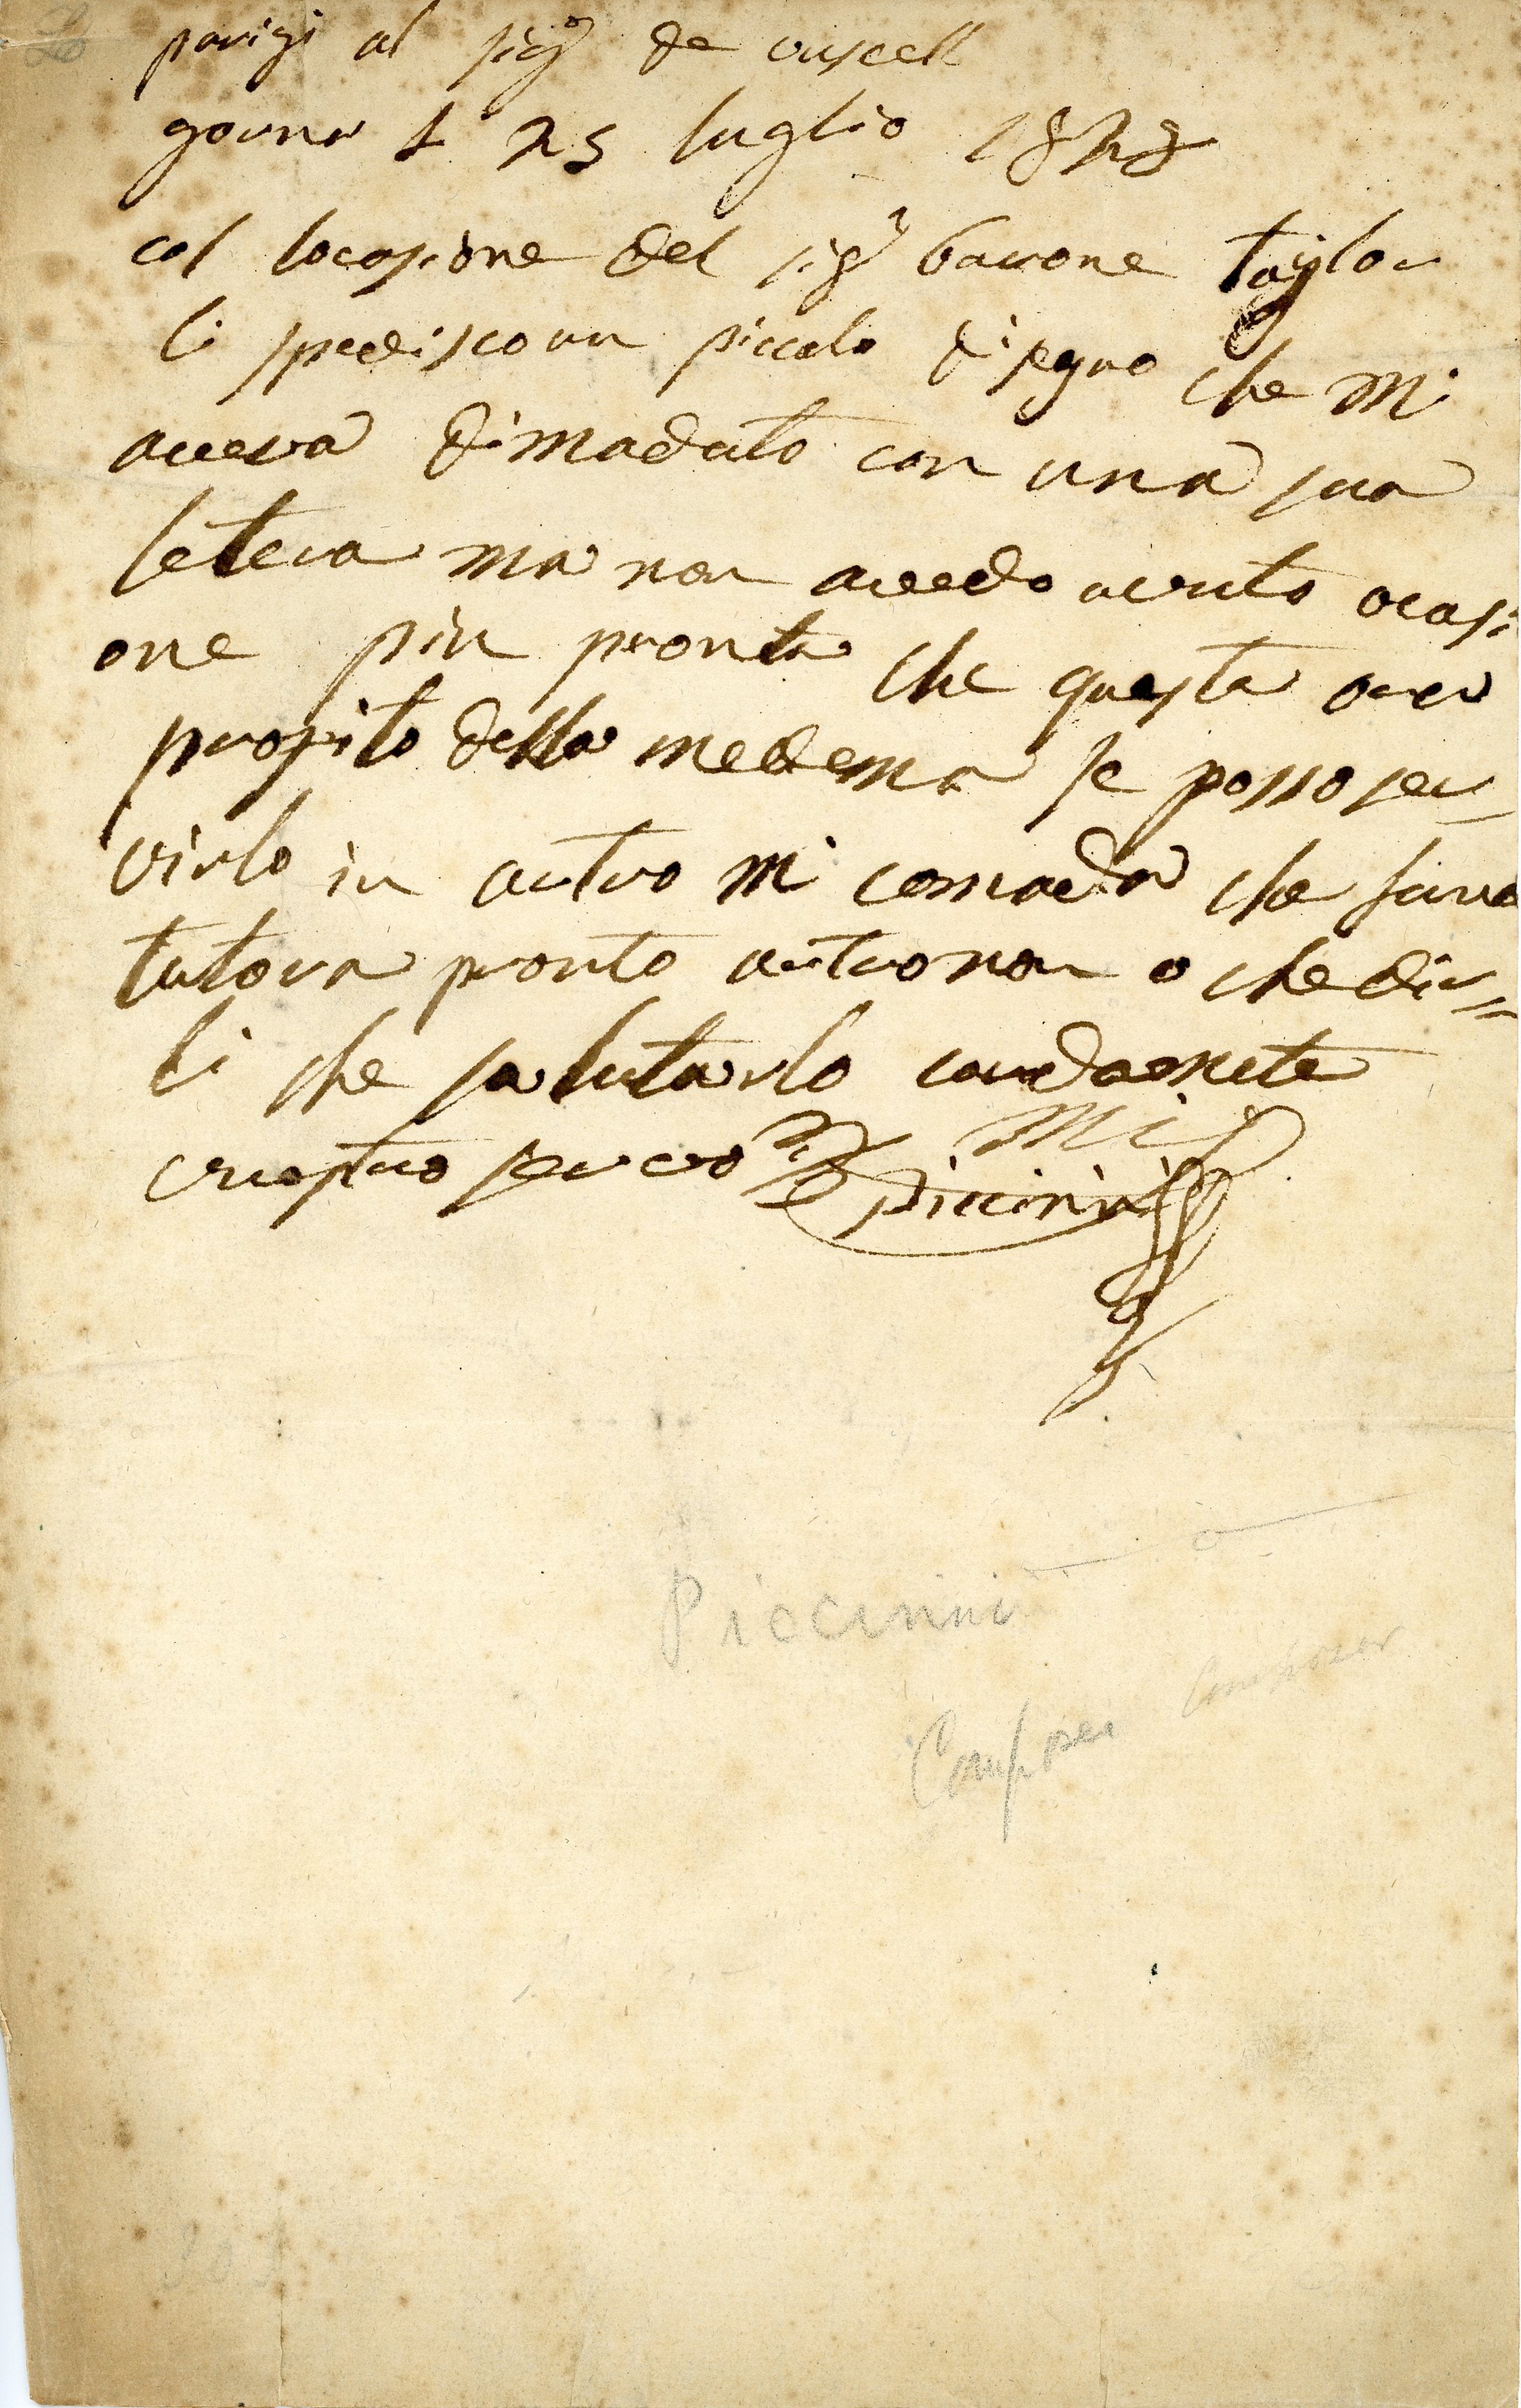 parigi al sigr de cuscell
gorno 1 25 luglio 1828
col locasione del sigr barone taylor
li spedisco un piccolo disegno che mi
aveva dimadato con una sua
letera ma non avedo avuto ocasi
one piu pronta che questa
proffito della medema se posso ser
virlo in autro mi comada che saro
tutora pronto autro non o che dir=
li che salutarlo
vuostro servo
Piccinni
Piccinni
Composer composer